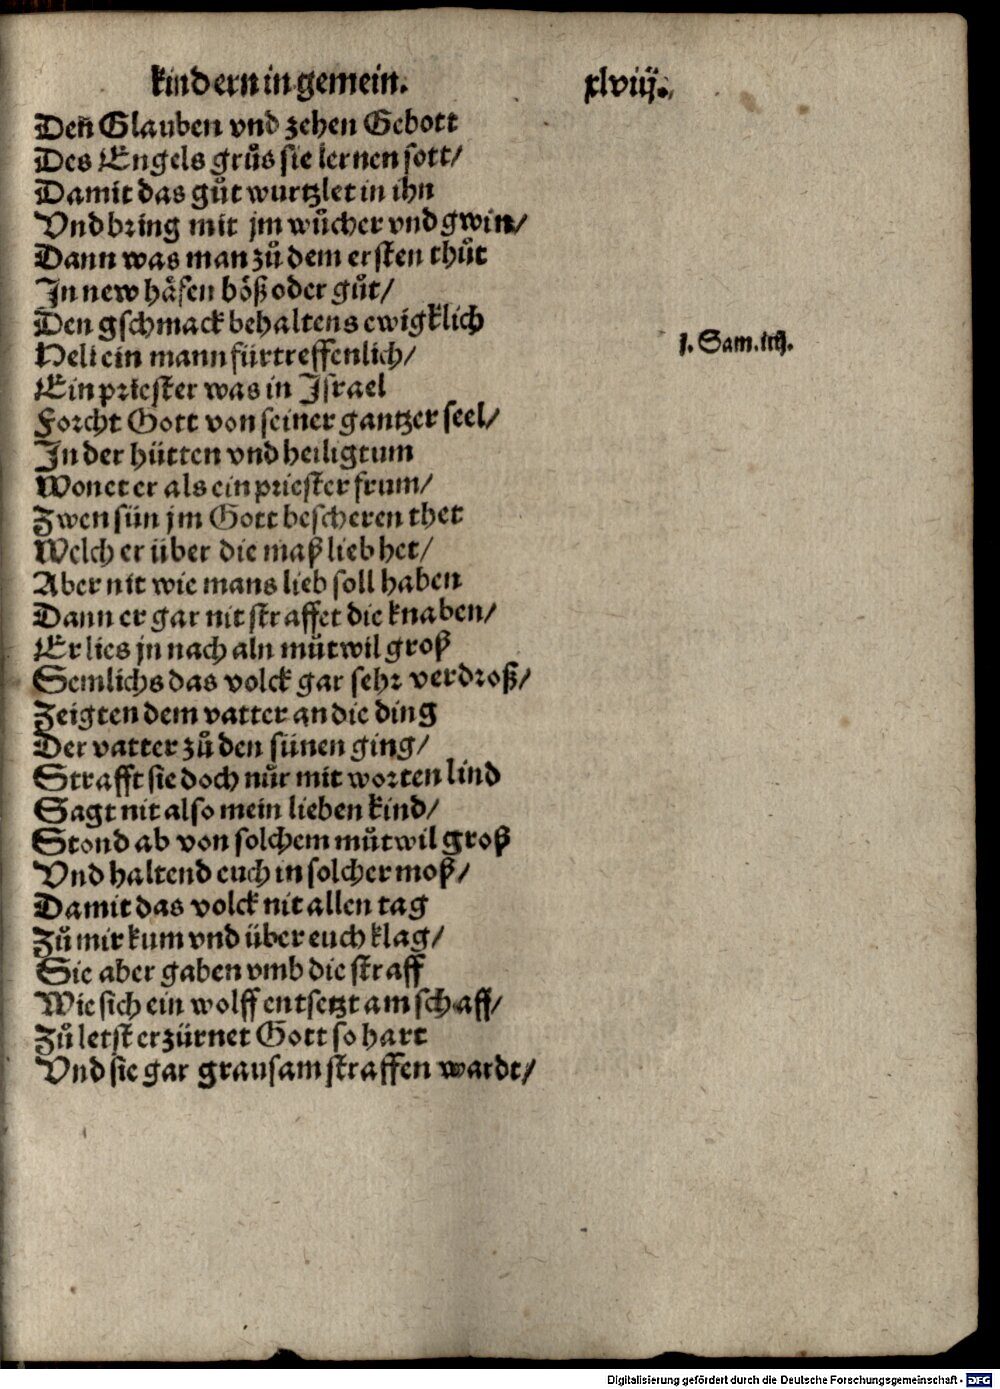 kindern in gemein. xlviij.
Deñ Glauben vnd zehen Gebott
Des Engels grůs sie lernen sott/
Damit das gůt wurtzlet in ihn
Vnd bring mit jm wůcher vnd gwin/
Dann was man zů dem ersten thůt
In new håfen böß oder gůt/
Den gschmack behaltens ewigklich
Heli ein mann fürtreffenlich/
j. Sam.
Ein priester was in Israel
Forcht Gott von seiner gantzer seel/
In der hütten vnd heiligtum
Wonet er als ein priester frum/
Zwen sün jm Gott bescheren thet
Welch er über die maß lieb het/
Aber nit wie mans lieb soll haben
Dann er gar nit straffet die knaben/
Er lies jn nach aln můtwil groß
Semlichs das volck gar sehr verdroß/
Zeigten dem vatter an die ding
Der vatter zů den sünen ging/
Strafft sie doch nůr mit worten lind
Sagt nit also mein lieben kind/
Stond ab von solchem můtwil groß
Vnd haltend euch in solcher moß/
Damit das volck nit allen tag
Zů mir kum vnd über euch klag/
Sie aber gaben vmb die straff
Wie sich ein wolff entsetzt am schaff/
Zů letst erzürnet Gott so hart
Vnd sie gar grausam straffen wardt/
Digitalisierung gefördert durch die Deutsche Forschungsgemeinschaft - DFG